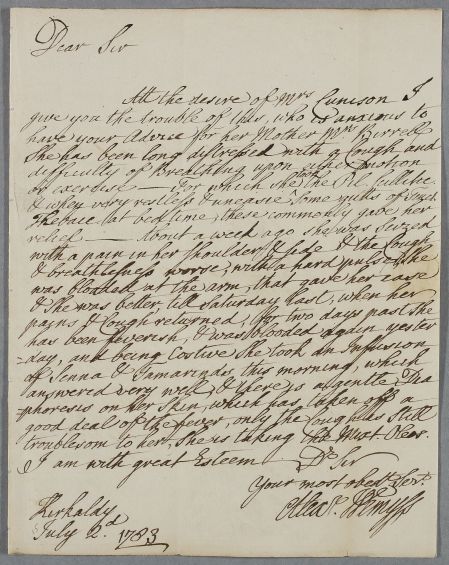 Dear Sir
Att the desire of Mrs Cunison I
give you the trouble of this, who is anxious to
have your Advice for her Mother Mrs Birrell
She has been long distressed with a Cough and
difficulty of Breathing upon motion
or exercise — For which she took the Ol:
& when very restless & uneasie, Some
Thebaic at bed time, these commonly gave her
relief — About a week ago she was Seized
with a pain in her Shoulder & Side & the Cough
& breathlesness worse, with a hard pulse, She
was blooded at the arm, that gave her ease
& She was better, till Saturday last, when her
pains & Cough returned, for two days past She
has been feverish, & was blooded again yester
-day, and being Costive She took an Infusion
of Senna & Tamarinds this morning, which
answered very well, & there is a gentle Dia
phoresis on her Skin, which has taken off a
good deal of the fever, only the Cough is Still
troublesom to her, She is taking the Mist. Oleos.
I am with great Esteem Dr Sir
Your most obedt Servt
Alexr Wemyss
Kirkaldy
July 2d 1783